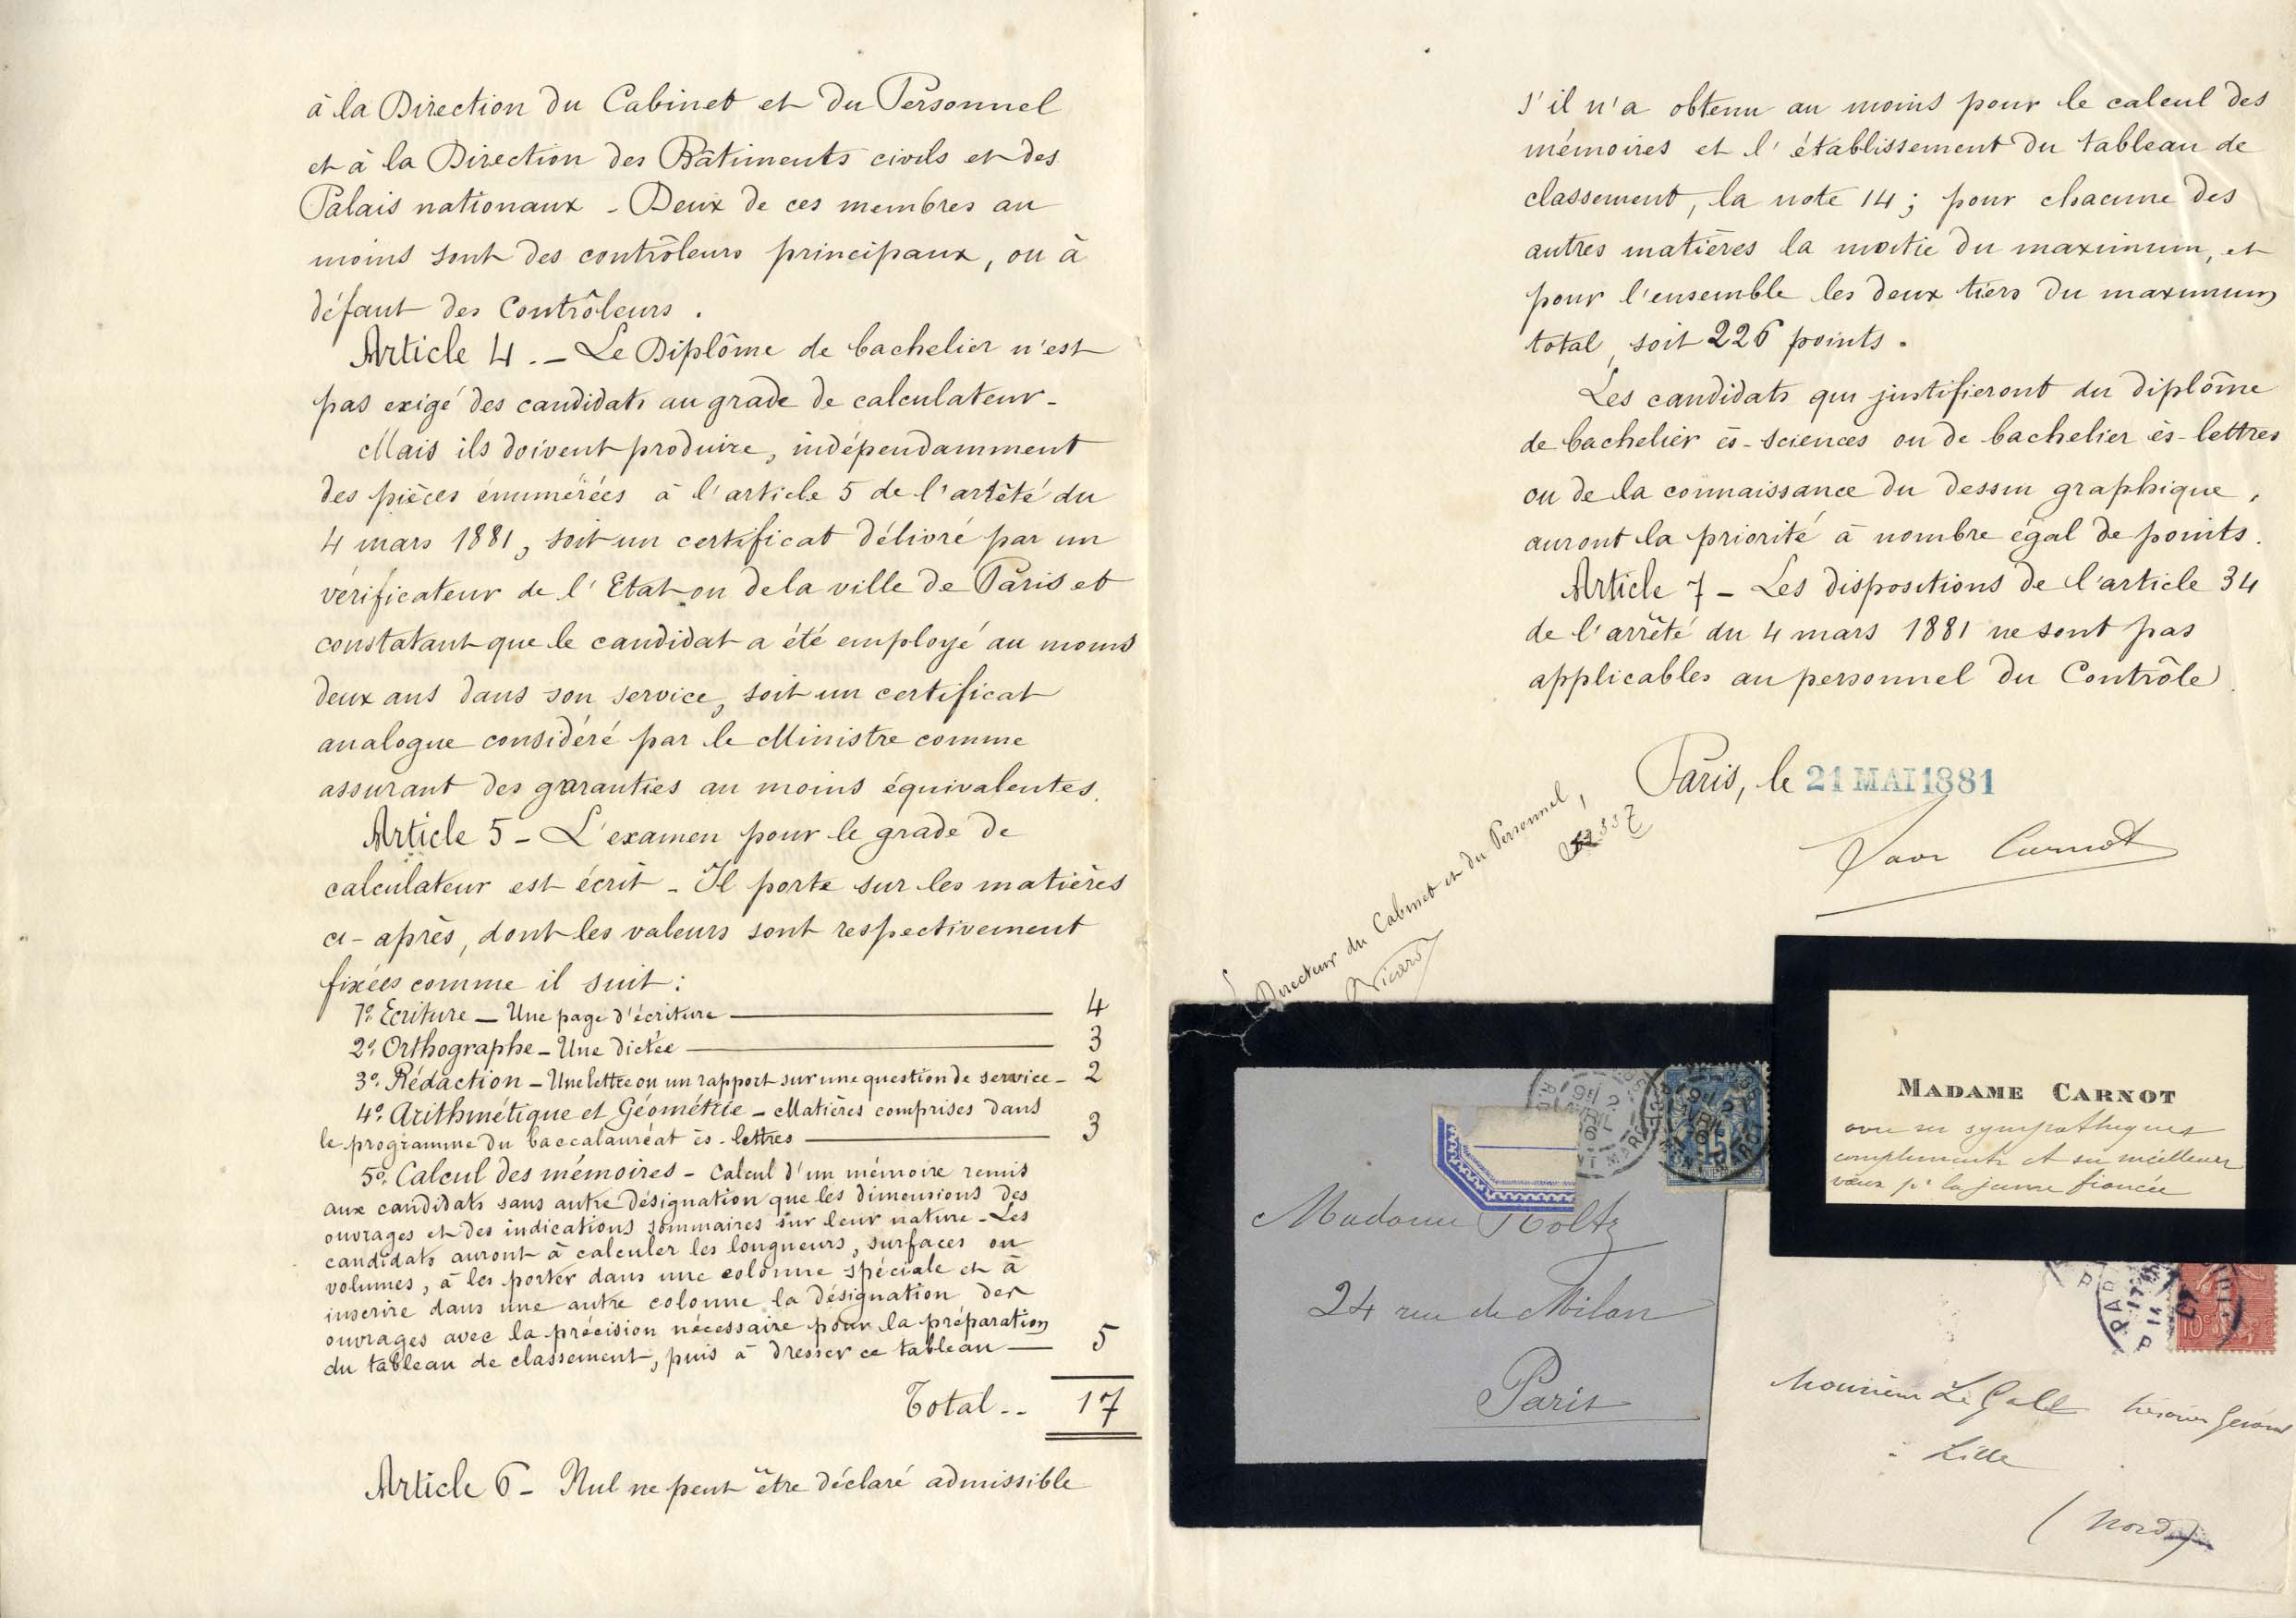 à la Direction du Cabinet et du Personnel
et à la Direction des Bâtiments civils et des
Palais nationaux - Deux de ces membres au
moins sont des contrôleurs principaux, ou à
défaut des Contrôleurs.
Article 4. - Le Diplôme de bachelier n'est
pas exigé des candidats au grade de calculateur -
Mais ils doivent produire, indépendamment
des pièces énumérées à l'article 5 de l'arrêté du
4 mars 1881, soit un certificat délivré par un
vérificateur de l'Etat ou de la ville de Paris et
constatant que le candidat a été employé au moins
deux ans dans son service, soit un certificat
analogue considéré par le Ministre comme
assurant des garanties au moins équivalentes.
Article 5 - L'examen pour le grade de
calculateur est écrit - Il porte sur les matières
ci-après, dont les valeurs sont respectivement
fixées comme il suit :
1º. Ecriture - Une page d'écriture 4
2º. Orthographe - Une dictée 3
3º. Rédaction - Une lettre ou un rapport sur une question de service - 2
4º. Arithmétique et Géométrie - Matières comprises dans
le programme du baccalauréat ès-lettres 3
5º. Calcul des mémoires - Calcul d'un mémoire remis
aux candidats sans autre désignation que les dimensions des
ouvrages et des indications sommaires sur leur nature - Les
candidats auront à calculer les longueurs, surfaces ou
volumes, à les porter dans une colonne spéciale et à
inscrire dans une autre colonne la désignation des
ouvrages avec la précision nécessaire pour la préparation
du tableau de classement, puis à dresser ce tableau 5
Total.. 17
Article 6 - Nul ne peut être déclaré admissible
s'il n'a obtenu au moins pour le calcul des
mémoires et l'établissement du tableau de
classement, la note 14 ; pour chacune des
autres matières la moitié du maximum, et
pour l'ensemble les deux tiers du maximum
total, soit 226 points.
Les candidats qui justifieront du diplôme
de bachelier ès-sciences ou de bachelier ès-lettres
ou de la connaissance du dessin graphique,
auront la priorité à nombre égal de points.
Article 7 - Les dispositions de l'article 34
de l'arrêté du 4 mars 1881 ne sont pas
applicables au personnel du Contrôle.
Paris, le 21 MAI 1881
Carnot
Directeur du Cabinet et du Personnel,
MADAME CARNOT
avec ses sympathiques
compliments et ses meilleurs
vœux pr la jeune fiancée
Madame Holtz
24 rue de Milan
Paris
15
10c
Monsieur Le Gall
à Lille
(Nord)